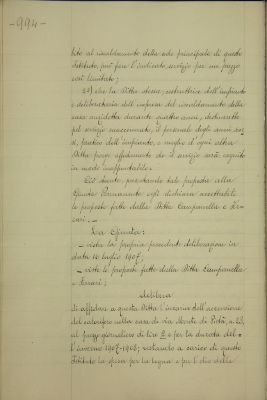 -994-
bito al riscaldamento della sede principale di questo
Istituto, può fare l'indicato servizio per un prezzo
così limitato;
2°) che la Ditta stessa, costruttrice dell'impianto
e deliberataria dell'impresa del riscaldamento della
casa anzidetta durante quattro anni, destinando
pel servizio menzionato, il personale degli anni
, pratico dell'impianto, è meglio d'ogni altra
Ditta possa affidamento che il servizio sarà eseguito
in modo inappuntabile.
Ciò stante, presentando tale proposta alla
Giunta Permanente egli dichiara accettabili
le proposte fatte dalla Ditta Campanella e
.-
La Giunta:
- vista la propria precedente deliberazione in
data 10 luglio 1907;
- viste le proposte fatte dalla Ditta Campanella
e ;
delibera
di affidare a questa Ditta l'incarico dell'accensione
del calorifero nella casa di via Monte di Pietà, n. 23,
al prezzo giornaliero di lire 2 e per la durata del-
l'inverno 1907-1908; restando a carico di questo
Istituto la spesa per la legna e per l'olio delle